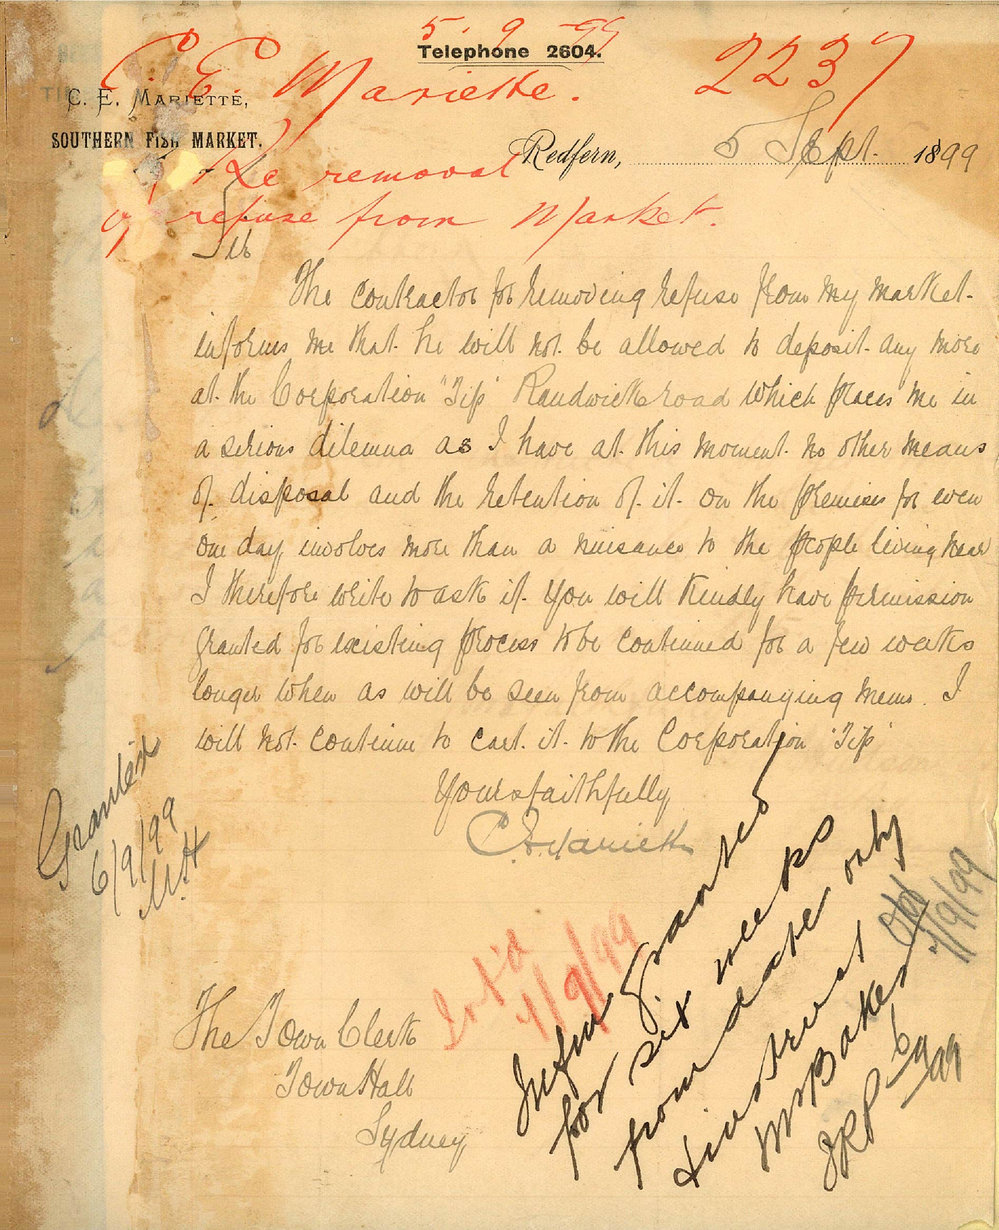 5. 9. 99
Telephone 2604.
C. E. Mariette. 2237
C. E. MARIETTE,
SOUTHERN FISH MARKET.
Redfern, 5 Sept. 1899
Re removal
of refuse from Market.
Sir
The contractor for removing refuse from my market
informs me that he will not be allowed to deposit any more
at the Corporation "Tip" Randwick road which places me in
a serious dilemma as I have at this moment no other means
of disposal and the retention of it on the premises for even
one day involves more than a nuisance to the people living near
I therefore write to ask if you will kindly have permission
granted for existing process to be continued for a few weeks
longer when as will be seen from accompanying memo. I
will not continue to cart it to the Corporation 'Tip'
Yours faithfully
C. E. Mariette
Granted
6/9/99
Inform granted
for six weeks
from date only
Instruct
Mr Baker
SRP 6/9/99
7/9/99
7/9/99
The Town Clerk
Town Hall
Sydney